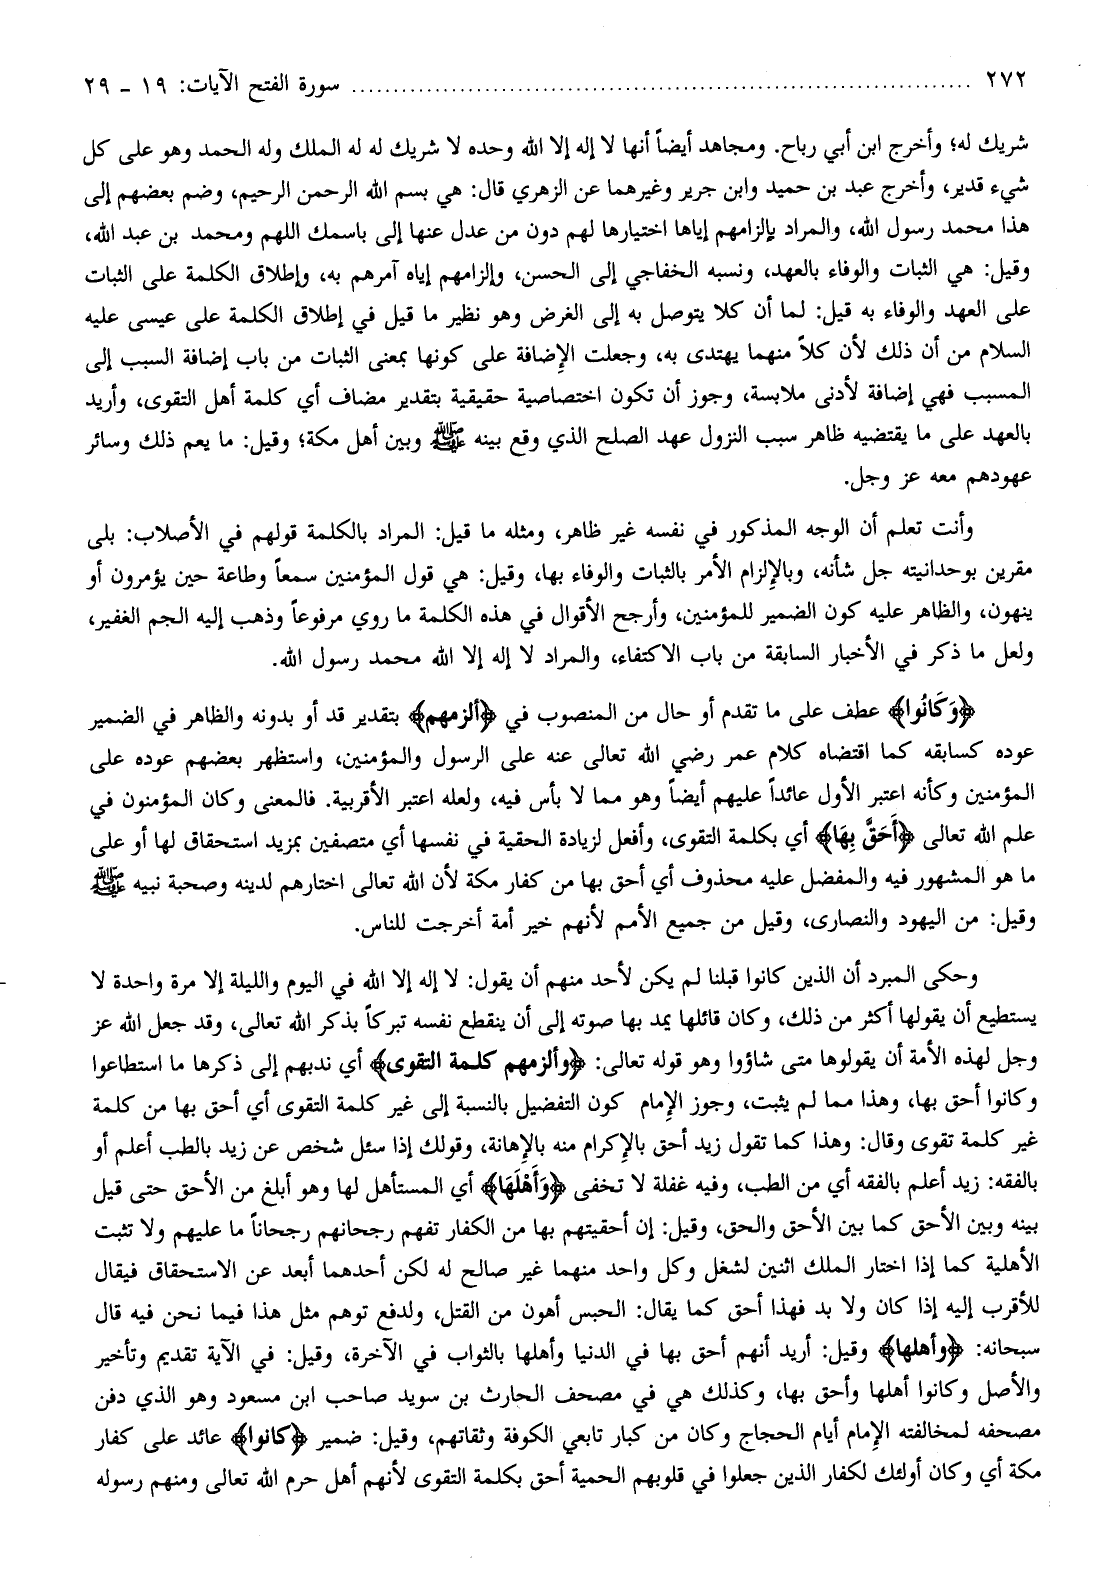 ٢٧٢ ........................................ سورة الفتح الآيات: ١٩ ـ ٢٩
شريك له؛ وأخرج ابن أبي رباح. ومجاهد أيضاً أنها لا إله إلا الله وحده لا شريك له له الملك وله الحمد وهو على كل
شيء قدير، وأخرج عبد بن حميد وابن جرير وغيرهما عن الزهري قال: هي بسم الله الرحمن الرحيم، وضم بعضهم إلى
هذا محمد رسول الله، والمراد بإلزامهم إياها اختيارها لهم دون من عدل عنها إلى باسمك اللهم ومحمد بن عبد الله،
وقيل: هي الثبات والوفاء بالعهد، ونسبه الخفاجي إلى الحسن، وإلزامهم إياه آمرهم به، وإطلاق الكلمة على الثبات
على العهد والوفاء به قيل: لما أن كلا يتوصل به إلى الغرض وهو نظير ما قيل في إطلاق الكلمة على عيسى عليه
السلام من أن ذلك لأن كلاً منهما يهتدى به، وجعلت الإضافة على كونها بمعنى الثبات من باب إضافة السبب إلى
المسبب فهي إضافة لأدنى ملابسة، وجوز أن تكون اختصاصية حقيقية بتقدير مضاف أي كلمة أهل التقوى، وأريد
بالعهد على ما يقتضيه ظاهر سبب النزول عهد الصلح الذي وقع بينه ﷺ وبين أهل مكة؛ وقيل: ما يعم ذلك وسائر
عهودهم معه عز وجل.
وأنت تعلم أن الوجه المذكور في نفسه غير ظاهر، ومثله ما قيل: المراد بالكلمة قولهم في الأصلاب: بلى
مقرين بوحدانيته جل شأنه، وبالإلزام الأمر بالثبات والوفاء بها، وقيل: هي قول المؤمنين سمعاً وطاعة حين يؤمرون أو
ينهون، والظاهر عليه كون الضمير للمؤمنين، وأرجح الأقوال في هذه الكلمة ما روي مرفوعاً وذهب إليه الجم الغفير،
ولعل ما ذكر في الأخبار السابقة من باب الاكتفاء، والمراد لا إله إلا الله محمد رسول الله.
﴿وَكَانُوا﴾ عطف على ما تقدم أو حال من المنصوب في ﴿ألزمهم﴾ بتقدير قد أو بدونه والظاهر في الضمير
عوده كسابقه كما اقتضاه كلام عمر رضي الله تعالى عنه على الرسول والمؤمنين، واستظهر بعضهم عوده على
المؤمنين وكأنه اعتبر الأول عائداً عليهم أيضاً وهو مما لا بأس فيه، ولعله اعتبر الأقربية. فالمعنى وكان المؤمنون في
علم الله تعالى ﴿أَحَقَّ بِهَا﴾ أي بكلمة التقوى، وأفعل لزيادة الحقية في نفسها أي متصفين بمزيد استحقاق لها أو على
ما هو المشهور فيه والمفضل عليه محذوف أي أحق بها من كفار مكة لأن الله تعالى اختارهم لدينه وصحبة نبيه ﷺ
وقيل: من اليهود والنصارى، وقيل من جميع الأمم لأنهم خير أمة أخرجت للناس.
وحكى المبرد أن الذين كانوا قبلنا لم يكن لأحد منهم أن يقول: لا إله إلا الله في اليوم والليلة إلا مرة واحدة لا
يستطيع أن يقولها أكثر من ذلك، وكان قائلها يمد بها صوته إلى أن ينقطع نفسه تبركاً بذكر الله تعالى، وقد جعل الله عز
وجل لهذه الأمة أن يقولوها متى شاؤوا وهو قوله تعالى: ﴿وألزمهم كلمة التقوى﴾ أي ندبهم إلى ذكرها ما استطاعوا
وكانوا أحق بها، وهذا مما لم يثبت، وجوز الإمام كون التفضيل بالنسبة إلى غير كلمة التقوى أي أحق بها من كلمة
غير كلمة تقوى وقال: وهذا كما تقول زيد أحق بالإكرام منه بالإهانة، وقولك إذا سئل شخص عن زيد بالطب أعلم أو
بالفقه: زيد أعلم بالفقه أي من الطب، وفيه غفلة لا تخفى ﴿وَأَهْلَهَا﴾ أي المستأهل لها وهو أبلغ من الأحق حتى قيل
بينه وبين الأحق كما بين الأحق والحق، وقيل: إن أحقيتهم بها من الكفار تفهم رجحانهم رجحاناً ما عليهم ولا تثبت
الأهلية كما إذا اختار الملك اثنين لشغل وكل واحد منهما غير صالح له لكن أحدهما أبعد عن الاستحقاق فيقال
للأقرب إليه إذا كان ولا بد فهذا أحق كما يقال: الحبس أهون من القتل، ولدفع توهم مثل هذا فيما نحن فيه قال
سبحانه: ﴿وأهلها﴾ وقيل: أريد أنهم أحق بها في الدنيا وأهلها بالثواب في الآخرة، وقيل: في الآية تقديم وتأخير
والأصل وكانوا أهلها وأحق بها، وكذلك هي في مصحف الحارث بن سويد صاحب ابن مسعود وهو الذي دفن
مصحفه لمخالفته الإمام أيام الحجاج وكان من كبار تابعي الكوفة وثقاتهم، وقيل: ضمير ﴿كانوا﴾ عائد على كفار
مكة أي وكان أولئك لكفار الذين جعلوا في قلوبهم الحمية أحق بكلمة التقوى لأنهم أهل حرم الله تعالى ومنهم رسوله